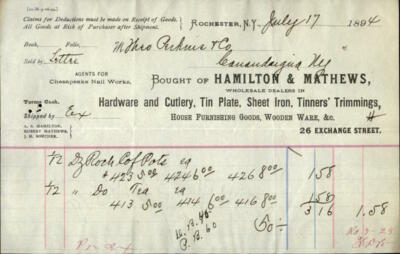 Claims for Deductions must be made on Receipt of Goods.
All Goods at Risk of Purchaser after Shipment.
ROCHESTER, N.Y., July 17 1894
Book, Folio,
M Thro Perkins & Co
Sold by Lottre
Canandaigua NY
AGENTS FOR
Chesapeake Nail Works.
BOUGHT OF HAMILTON & MATHEWS,
WHOLESALE DEALERS IN
Terms Cash.
Hardware and Cutlery, Tin Plate, Sheet Iron, Tinners' Trimmings,
Shipped by Ex
HOUSE FURNISHING GOODS, WOODEN WARE, &c.
A. B. HAMILTON,
ROBERT MATHEWS,
26 EXCHANGE STREET.
1/2 Dz Roch Cof Pots ea
423 5.00 424 6.00 426 8.00 1 58
1/2 " Do Tea ea
413 5.00 414 6.00 416 8.00 1 58
3 16 1.58
50